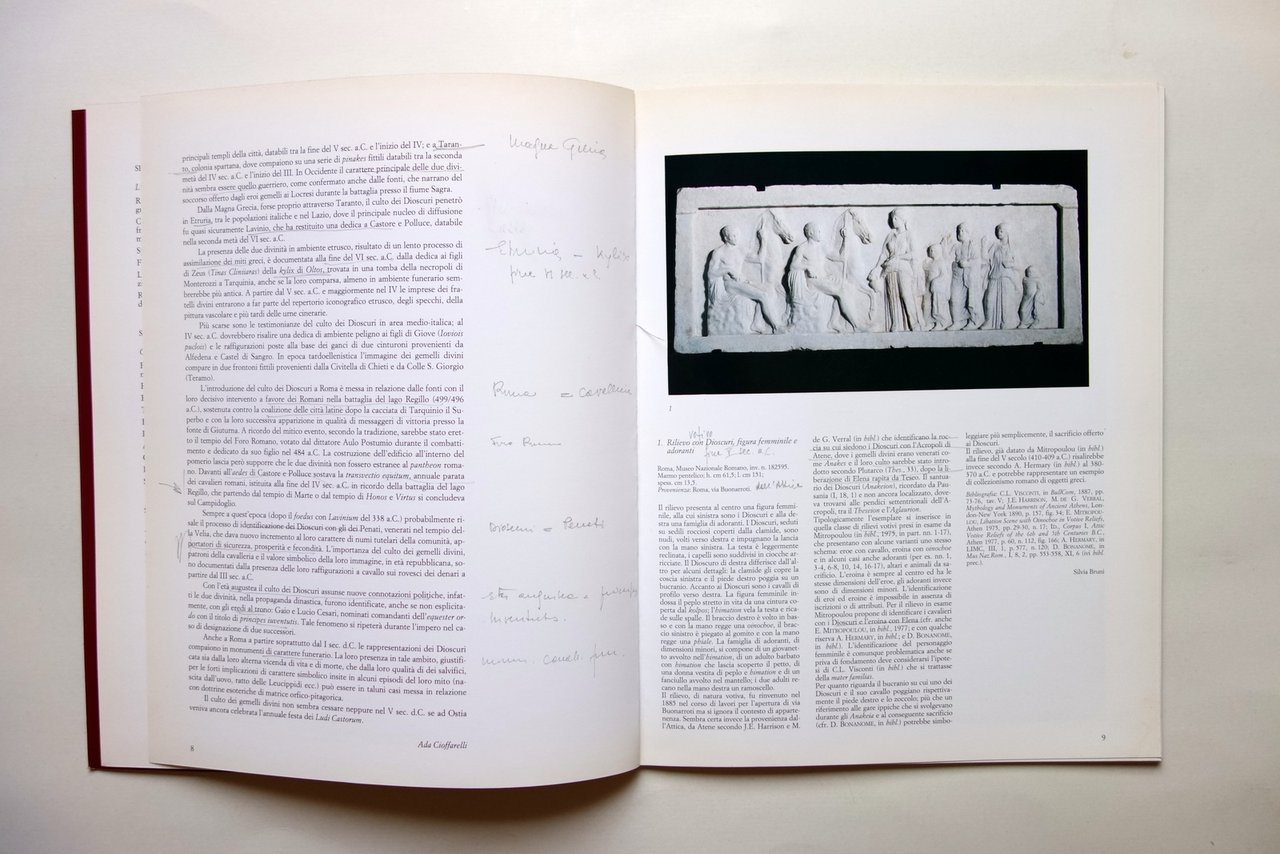 principali templi della città, databili tra la fine del V sec. a.C. e l'inizio del IV; e a Taran-
to, colonia spartana, dove compaiono su una serie di pinakes fittili databili tra la seconda
metà del IV sec. a.C. e l'inizio del III. In Occidente il carattere principale delle due divi-
nità sembra essere quello guerriero, come confermato anche dalle fonti, che narrano del
soccorso offerto dagli eroi gemelli ai Locresi durante la battaglia presso il fiume Sagra.
Dalla Magna Grecia, forse proprio attraverso Taranto, il culto dei Dioscuri penetrò
in Etruria, tra le popolazioni italiche e nel Lazio, dove il principale nucleo di diffusione
fu quasi sicuramente Lavinio, che ha restituito una dedica a Castore e Polluce, databile
nella seconda metà del VI sec. a.C.
La presenza delle due divinità in ambiente etrusco, risultato di un lento processo di
assimilazione dei miti greci, è documentata alla fine del VI sec. a.C. dalla dedica ai figli
di Zeus (Tinas Cliniaras) della kylix di Oltos, trovata in una tomba della necropoli di
Monterozzi a Tarquinia, anche se la loro comparsa, almeno in ambiente funerario sem-
brerebbe più antica. A partire dal V sec. a.C. e maggiormente nel IV le imprese dei fra-
telli divini entrarono a far parte del repertorio iconografico etrusco, degli specchi, della
pittura vascolare e più tardi delle urne cinerarie.
Più scarse sono le testimonianze del culto dei Dioscuri in area medio-italica; al
IV sec. a.C. dovrebbero risalire una dedica di ambiente peligno ai figli di Giove (Ioviois
puclois) e le raffigurazioni poste alla base dei ganci di due cinturoni provenienti da
Alfedena e Castel di Sangro. In epoca tardoellenistica l'immagine dei gemelli divini
compare in due frontoni fittili provenienti dalla Civitella di Chieti e da Colle S. Giorgio
(Teramo).
L'introduzione del culto dei Dioscuri a Roma è messa in relazione dalle fonti con il
loro decisivo intervento a favore dei Romani nella battaglia del lago Regillo (499/496
a.C.), sostenuta contro la coalizione delle città latine dopo la cacciata di Tarquinio il Su-
perbo e con la loro successiva apparizione in qualità di messaggeri di vittoria presso la
fonte di Giuturna. A ricordo del mitico evento, secondo la tradizione, sarebbe stato eret-
to il tempio del Foro Romano, votato dal dittatore Aulo Postumio durante il combatti-
mento e dedicato da suo figlio nel 484 a.C. La costruzione dell'edificio all'interno del
pomerio lascia però supporre che le due divinità non fossero estranee al pantheon roma-
no. Davanti all'aedes di Castore e Polluce sostava la transvectio equitum, annuale parata
dei cavalieri romani, istituita alla fine del IV sec. a.C. in ricordo della battaglia del lago
Regillo, che partendo dal tempio di Marte o dal tempio di Honos e Virtus si concludeva
sul Campidoglio.
Sempre a quest'epoca (dopo il foedus con Lavinium del 338 a.C.) probabilmente ri-
sale il processo di identificazione dei Dioscuri con gli dei Penati, venerati nel tempio del-
la Velia, che dava nuovo incremento al loro carattere di numi tutelari della comunità, ap-
portatori di sicurezza, prosperità e fecondità. L'importanza del culto dei gemelli divini,
patroni della cavalleria e il valore simbolico della loro immagine, in età repubblicana, so-
no documentati dalla presenza delle loro raffigurazioni a cavallo sui rovesci dei denari a
partire dal III sec. a.C.
Con l'età augustea il culto dei Dioscuri assunse nuove connotazioni politiche, infat-
ti le due divinità, nella propaganda dinastica, furono identificate, anche se non esplicita-
mente, con gli eredi al trono: Gaio e Lucio Cesari, nominati comandanti dell'equester or-
do con il titolo di principes iuventutis. Tale fenomeno si ripeterà durante l'impero nel ca-
so di designazione di due successori.
Anche a Roma a partire soprattutto dal I sec. d.C. le rappresentazioni dei Dioscuri
compaiono in monumenti di carattere funerario. La loro presenza in tale ambito, giustifi-
cata sia dalla loro alterna vicenda di vita e di morte, che dalla loro qualità di dei salvifici,
per le forti implicazioni di carattere simbolico insite in alcuni episodi del loro mito (na-
scita dall'uovo, ratto delle Leucippidi ecc.) può essere in taluni casi messa in relazione
con dottrine esoteriche di matrice orfico-pitagorica.
Il culto dei gemelli divini non sembra cessare neppure nel V sec. d.C. se ad Ostia
veniva ancora celebrata l'annuale festa dei Ludi Castorum.
8
Ada Cioffarelli
Magna Grecia
Etruria – Kylix
fine VI sec. a.C.
Roma = cavalleria
Foro Romano
Dioscuri = Penati
età augustea = principes
iuventutis.
monum. caratt. fun.
1
votivo
1. Rilievo con Dioscuri, figura femminile e
adoranti
fine V sec. a.C.
Roma, Museo Nazionale Romano, inv. n. 182595.
Marmo pentelico; h. cm 61,5; l. cm 151;
spess. cm 13,5.
Provenienza: Roma, via Buonarroti. dall'Attica
Il rilievo presenta al centro una figura femmi-
nile, alla cui sinistra sono i Dioscuri e alla de-
stra una famiglia di adoranti. I Dioscuri, seduti
su sedili rocciosi coperti dalla clamide, sono
nudi, volti verso destra e impugnano la lancia
con la mano sinistra. La testa è leggermente
reclinata, i capelli sono suddivisi in ciocche ar-
ricciate. Il Dioscuro di destra differisce dall'al-
tro per alcuni dettagli: la clamide gli copre la
coscia sinistra e il piede destro poggia su un
bucranio. Accanto ai Dioscuri sono i cavalli di
profilo verso destra. La figura femminile in-
dossa il peplo stretto in vita da una cintura co-
perta dal kolpos; l'himation vela la testa e rica-
de sulle spalle. Il braccio destro è volto in bas-
so e con la mano regge una oinochoe, il brac-
cio sinistro è piegato al gomito e con la mano
regge una phiale. La famiglia di adoranti, di
dimensioni minori, si compone di un giovanet-
to avvolto nell'himation, di un adulto barbato
con himation che lascia scoperto il petto, di
una donna vestita di peplo e himation e di un
fanciullo avvolto nel mantello; i due adulti re-
cano nella mano destra un ramoscello.
Il rilievo, di natura votiva, fu rinvenuto nel
1885 nel corso di lavori per l'apertura di via
Buonarroti ma si ignora il contesto di apparte-
nenza. Sembra certa invece la provenienza dal-
l'Attica, da Atene secondo J.E. Harrison e M.
de G. Verral (in bibl.) che identificano la roc-
cia su cui siedono i Dioscuri con l'Acropoli di
Atene, dove i gemelli divini erano venerati co-
me Anakes e il loro culto sarebbe stato intro-
dotto secondo Plutarco (Thes., 33), dopo la li-
berazione di Elena rapita da Teseo. Il santua-
rio dei Dioscuri (Anakeion), ricordato da Pau-
sania (I, 18, 1) e non ancora localizzato, dove-
va trovarsi alle pendici settentrionali dell'A-
cropoli, tra il Theseion e l'Aglaurion.
Tipologicamente l'esemplare si inserisce in
quella classe di rilievi votivi presi in esame da
Mitropoulou (in bibl., 1975, in part. nn. 1-17),
che presentano con alcune varianti uno stesso
schema: eroe con cavallo, eroina con oinochoe
e in alcuni casi anche adoranti (per es. nn. 1,
3-4, 6-8, 10, 14, 16-17), altari e animali da sa-
crificio. L'eroina è sempre al centro ed ha le
stesse dimensioni dell'eroe, gli adoranti invece
sono di dimensioni minori. L'identificazione
di eroi ed eroine è impossibile in assenza di
iscrizioni o di attributi. Per il rilievo in esame
Mitropoulou propone di identificare i cavalieri
con i Dioscuri e l'eroina con Elena (cfr. anche
E. MITROPOULOU, in bibl., 1977; e con qualche
riserva A. HERMARY, in bibl.; e D. BONANOME,
in bibl.). L'identificazione del personaggio
femminile è comunque problematica anche se
priva di fondamento deve considerarsi l'ipote-
si di C.L. Visconti (in bibl.) che si trattasse
della mater familias.
Per quanto riguarda il bucranio su cui uno dei
Dioscuri e il suo cavallo poggiano rispettiva-
mente il piede destro e lo zoccolo; più che un
riferimento alle gare ippiche che si svolgevano
durante gli Anakeia e al conseguente sacrificio
(cfr. D. BONANOME, in bibl.) potrebbe simbo-
leggiare più semplicemente, il sacrificio offerto
ai Dioscuri.
Il rilievo, già datato da Mitropoulou (in bibl.)
alla fine del V secolo (410-409 a.C.) risalirebbe
invece secondo A. Hermary (in bibl.) al 380-
370 a.C. e potrebbe rappresentare un esempio
di collezionismo romano di oggetti greci.
Bibliografia: C.L. VISCONTI, in BullCom, 1887, pp.
73-76, tav. V; J.E. HARRISON, M. DE G. VERRAL,
Mythology and Monuments of Ancient Athens, Lon-
don-New York 1890, p. 157, fig. 34; E. MITROPOU-
LOU, Libation Scene with Oinochoe in Votive Reliefs,
Athen 1975, pp. 29-30, n. 17; ID., Corpus I, Attic
Votive Reliefs of the 6th and 5th Centuries B.C.,
Athen 1977, p. 60, n. 112, fig. 166; A. HERMARY, in
LIMC, III, 1, p. 577, n. 120; D. BONANOME, in
Mus.Naz.Rom., I, 8, 2, pp. 555-558, XI, 6 (ivi bibl.
prec.).
Silvia Bruni
9